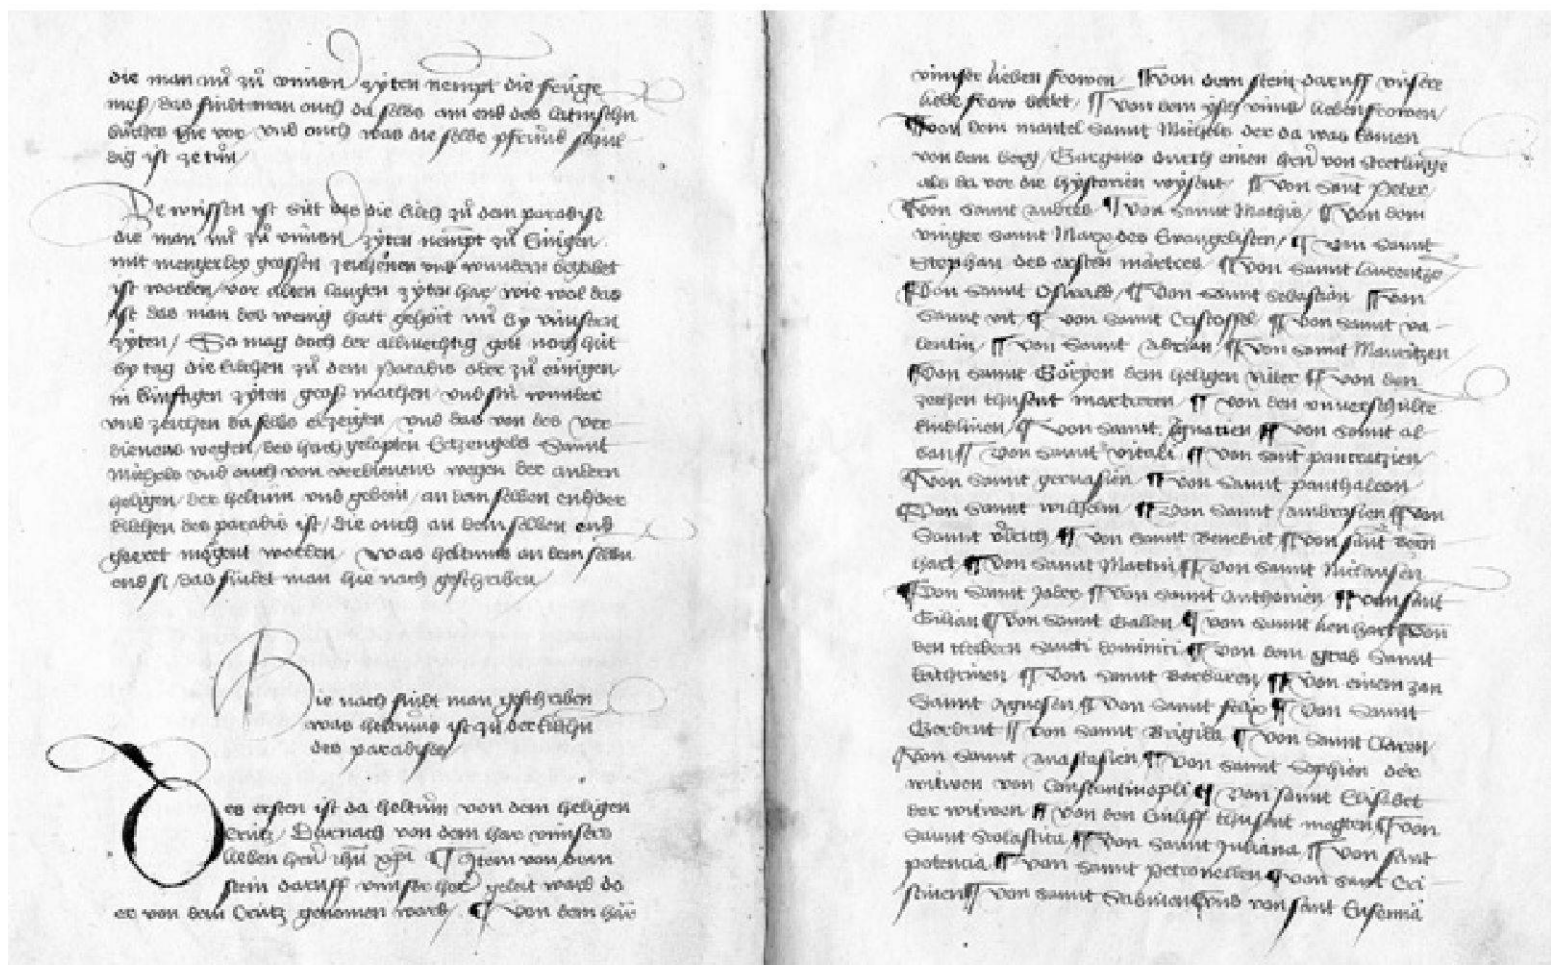 die man nu zu unnsen zyten nempt die frůge
mess / das findt man ouch da selbs am end des latinschn
buches hie vor vnd ouch was die selbe pfrund schul
dig ist ze tun /
Ze wissen ist sid das die kilch zu dem paradyse
die man nu zu vnnsen zyten nempt zu Einigen
mit mengerley grossen zeichenen vnd wundern begabet
ist worden / vor alten langen zyten har / wie wol das
ist das man des wenig hatt gehört nu by vnnsern
zyten / So mag doch der allmechtig gott noch hüt
by tag die kilchen zu dem Paradis oder zu einigen
in künftigen zyten gross machen / vnd sin wunder
vnd zeichen da selbs erzeigen / vnd das von des ver
dienens wegen / des hoch gelopten Ertzengels Sannt
Michels vnd ouch von verdienens wegen der andern
heligen / der heltum vnd gebein / an dem selben end der
kilchen des paradis ist / die ouch an dem selben end
geeret mögent werden / Was heltums an dem selbn
end si / das findet man hie nach geschriben
Hie nach findt man geschriben
was heltums ist zu der kilchn
des paradises
Des ersten ist da heltum von dem heligen
Crütz / Darnach von dem har vnnsers
lieben hern ihu xpi ¶ Item von dem
stein daruff vnnser her geleit ward do
er von dem Crütz genomen ward ¶ Von dem har
vnnser lieben frowen ¶ Von dem stein daruff vnnsere
liebe frow bettet / ¶ Von dem tisch vnns / lieben frowen /
¶ Von dem mantel Sannt Michels der da was komen
von dem berg / Gargano durch einen hern von Stretlinge
als da vor die hystorien wysent / ¶ Von Sant Peter
¶ Von Sannt Andres ¶ Von Sannt Mathis / ¶ Von dem
vinger Sannt Marx des Evangelisten / ¶ Von Sannt
Stephan des ersten martres ¶ Von Sannt laurentze
¶ Von Sannt Oswald / ¶ Von Sannt Sebastion ¶ Von
Sannt vit / ¶ Von Sannt Cristoffel ¶ Von Sannt va
lentin / ¶ Von Sannt Adrian / ¶ Von Sannt Mauritzen
¶ Von Sannt Göryen dem heligen ritter ¶ Von den
zechen thusent martreren / ¶ Von den vnverschulte
kindlinen / ¶ Von Sannt Ignatien ¶ Von Sannt al
ban ¶ Von Sannt vitali ¶ Von Sant pancratzien /
¶ Von Sannt gervasien / ¶ Von Sannt panthaleon /
¶ Von Sannt wilhelm / ¶ Von Sannt Ambrosien ¶ Von
Sannt Vlrich ¶ Von Sannt Benedict ¶ Von sant Bern
hart ¶ Von Sannt Martin / ¶ Von Sannt Niclausen
¶ Von Sannt ¶ Von Sannt Anthonien ¶ Von sant
Gilian ¶ Von Sannt Gallen ¶ Von Sannt lienhart ¶ Von
den kleidern Sancti dominici ¶ Von dem grab Sannt
kathrinen ¶ Von Sannt Barbaren ¶ Von einem zan
Sannt Agnesen ¶ Von Sannt felix ¶ Von Sannt
Gerdrut ¶ Von Sannt Brigida ¶ Von Sannt Claren
¶ Von Sannt Anastasien ¶ Von Sannt Sophien der
witwen von Constantinopli ¶ Von Sannt Elisabet
der witwen ¶ Von den Einliff thusent megten ¶ Von
Sannt Scolastica ¶ Von Sannt Juliana ¶ Von sant
potencia ¶ Von Sannt Petronellen ¶ Von Sant Cri
stinen ¶ Von Sannt Sabinen ¶ vnd von sant Eufemia